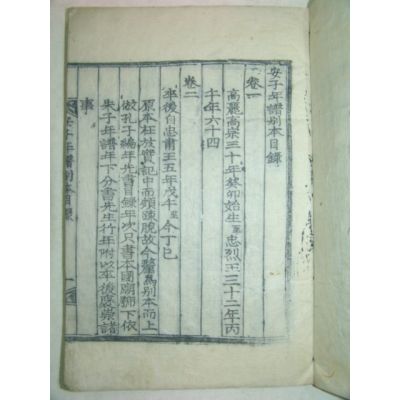 安子年譜別本目錄
卷一
高麗高宗三十年癸卯始生至忠烈王三十二年丙
午年六十四
卷二
卒後自忠肅王五年戊午至今丁巳
原本在放實記中而頗疎脫故今釐爲別本而上
倣孔子編年先書目錄年次只書本國廟號下依
朱子年譜年下分書先生行年附以卒後褒崇諸
事
安子年譜別本目錄 一